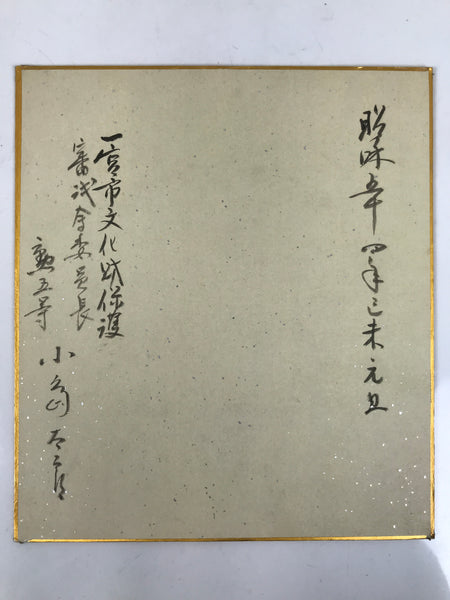 昭和五十四年己未元旦
一宮市文化財保護
審議会委員長
勲五等 小